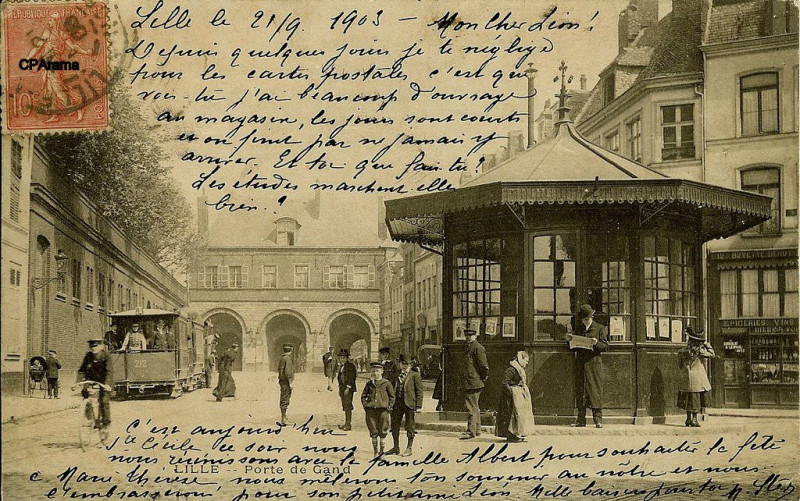 RÉPUBLIQUE FRANÇAISE
CPArama
10
Lille le 21/9 1903 — Mon Cher Léon!
Depuis quelques jours je te néglige
pour les cartes postales c'est que
vois-tu j'ai beaucoup d'ouvrage
au magasin, les jours sont courts
et on finit par ne jamais y
arriver. Et toi que fais-tu?
Les études marchent elles
bien?
212
C'est aujourd'hui
Ste Cécile ce soir nous
nous réunissons avec la famille Albert pour souhaiter la fête
LILLE - Porte de Gand
c. Marie Thérèse, nous mêlerons ton souvenir au nôtre et nous
t'embrasserons pour son petit ami Léon. Mille baisers